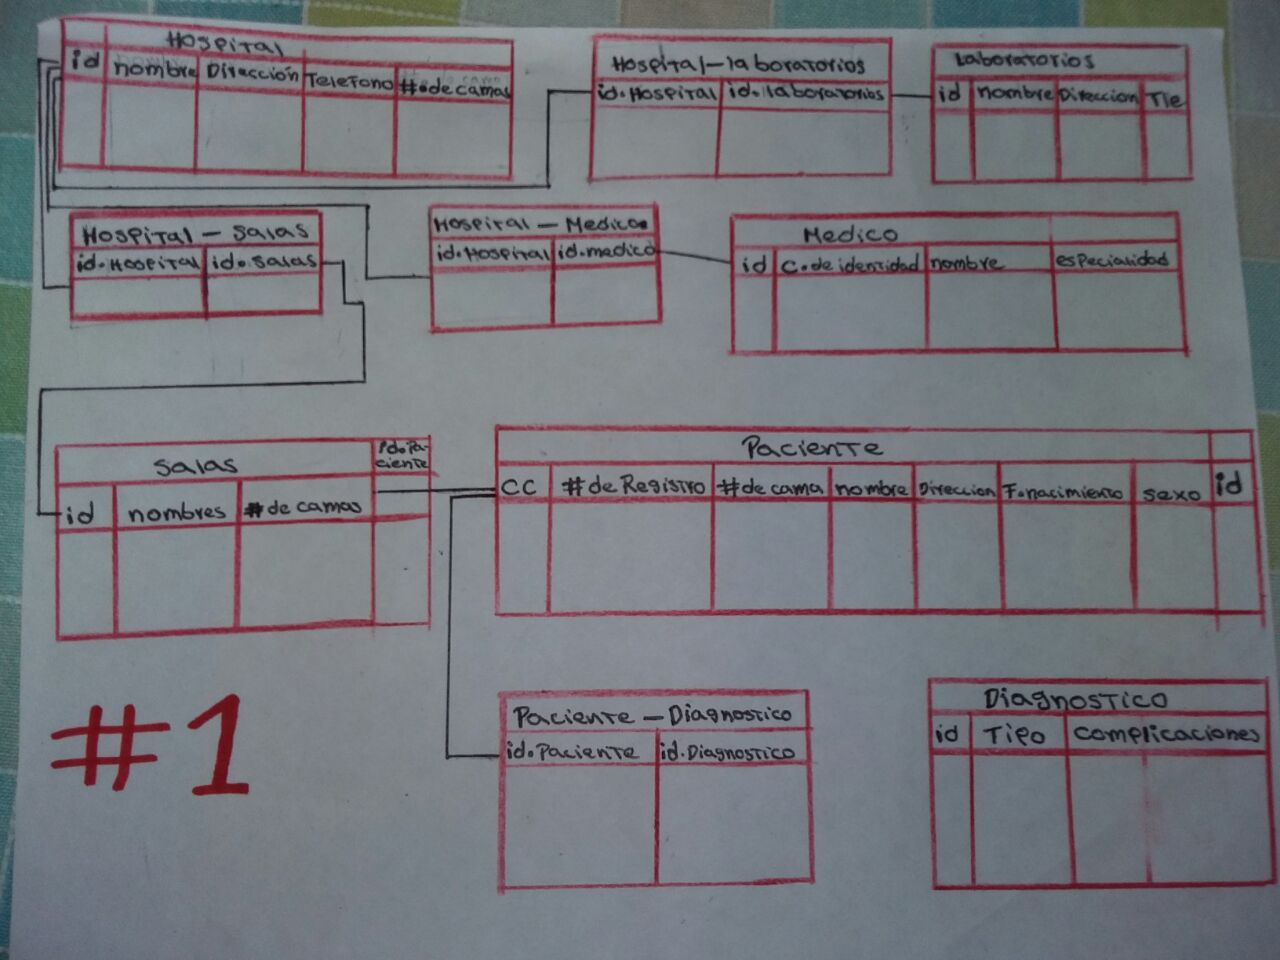 Hospital
id nombre Dirección Telefono #.de camas
Hospital-laboratorios
id.Hospital id.laboratorios
Laboratorios
id nombre Direccion Tle
Hospital - Salas
id.Hospital id.salas
Hospital - Medico
id.Hospital id.medico
Medico
id C.de identidad nombre especialidad
Salas
id.Pa-
ciente
id nombres # de camas
Paciente
CC # de Registro # de cama nombre Direccion F.nacimiento sexo id
#1
Paciente - Diagnostico
id.Paciente id.Diagnostico
Diagnostico
id Tipo complicaciones